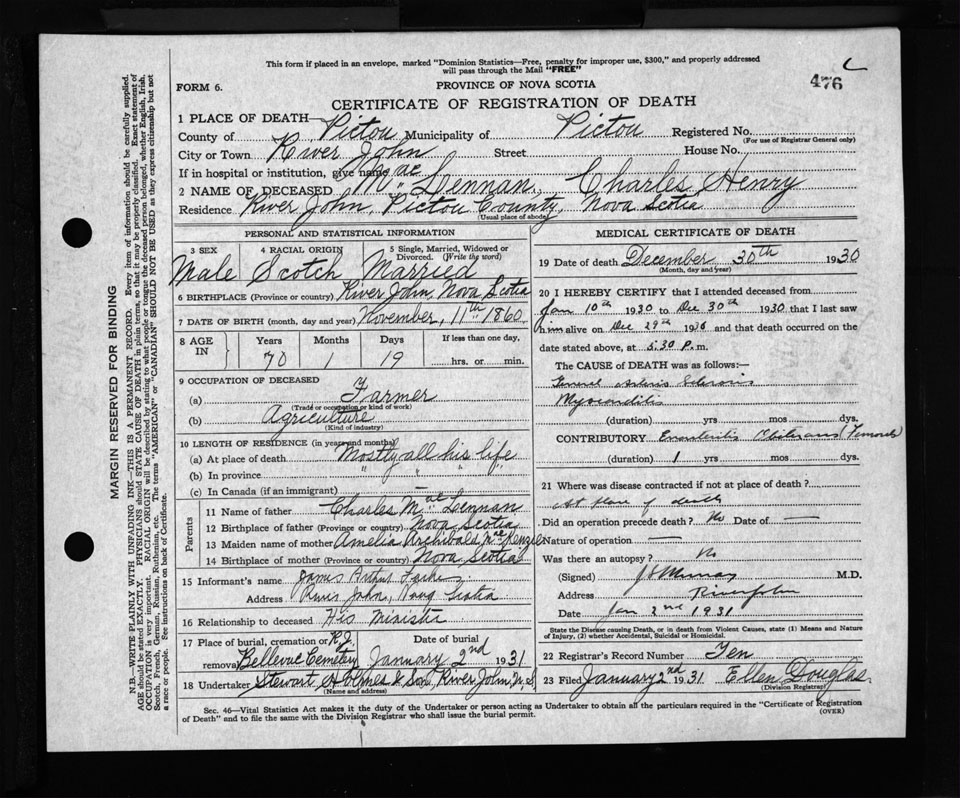 This form if placed in an envelope, marked "Dominion Statistics—Free, penalty for improper use, $300," and properly addressed
will pass through the Mail "FREE"
476
FORM 6.
PROVINCE OF NOVA SCOTIA
CERTIFICATE OF REGISTRATION OF DEATH
1 PLACE OF DEATH—
County of Pictou Municipality of Pictou Registered No.
(For use of Registrar General only)
City or Town River John Street House No.
If in hospital or institution, give name
2 NAME OF DECEASED MacLennan, Charles Henry
Residence River John, Pictou County, Nova Scotia
(Usual place of abode)
PERSONAL AND STATISTICAL INFORMATION
3 SEX 4 RACIAL ORIGIN 5 Single, Married, Widowed or Divorced. (Write the word)
Male Scotch Married
6 BIRTHPLACE (Province or country) River John, Nova Scotia
7 DATE OF BIRTH (month, day and year) November, 11th 1860
8 AGE IN Years Months Days If less than one day,
70 1 19 hrs. or min.
9 OCCUPATION OF DECEASED
(a) Farmer
(Trade or occupation or kind of work)
(b) Agriculture
(Kind of industry)
10 LENGTH OF RESIDENCE (in years and months)
(a) At place of death Mostly all his life
(b) In province " " " "
(c) In Canada (if an immigrant) —
Parents
11 Name of father Charles MacLennan
12 Birthplace of father (Province or country) Nova Scotia
13 Maiden name of mother Amelia Archibald McKenzie
14 Birthplace of mother (Province or country) Nova Scotia
15 Informant's name James Arthur
Address River John, Nova Scotia
16 Relationship to deceased His Minister
17 Place of burial, cremation or R.J. Date of burial
removal Bellevue Cemetery January 2nd 1931
18 Undertaker Stewart A Holmes & Son, River John, N.S.
(Name and address)
MEDICAL CERTIFICATE OF DEATH
19 Date of death December 30th 1930
(Month, day and year)
20 I HEREBY CERTIFY that I attended deceased from
Jan 10th 1930 to Dec 30th 1930 that I last saw
him alive on Dec 29th 1930 and that death occurred on the
date stated above, at 5:30 P. m.
The CAUSE of DEATH was as follows:—
General Arterio Sclerosis
Myocarditis
(duration) yrs mos dys.
CONTRIBUTORY Obliterans Femoral
(duration) 1 yrs mos dys.
21 Where was disease contracted if not at place of death?
At place of death
Did an operation precede death? No Date of —
Nature of operation —
Was there an autopsy? No
(Signed) Murray M.D.
Address River John
Date Jan 2nd 1931
State the Disease causing Death, or in death from Violent Causes, state (1) Means and Nature
of Injury, (2) whether Accidental, Suicidal or Homicidal.
22 Registrar's Record Number Ten
23 Filed January 2nd 1931 Ellen Douglas
(Division Registrar)
Sec. 46—Vital Statistics Act makes it the duty of the Undertaker or person acting as Undertaker to obtain all the particulars required in the "Certificate of Registration
of Death" and to file the same with the Division Registrar who shall issue the burial permit.
(OVER)
MARGIN RESERVED FOR BINDING
N.B.—WRITE PLAINLY, WITH UNFADING INK—THIS IS A PERMANENT RECORD. Every item of information should be carefully supplied.
AGE should be stated EXACTLY. PHYSICIANS should STATE CAUSE OF DEATH in plain terms, so that it may be properly classified. Exact statement of
OCCUPATION is very important. RACIAL ORIGIN will be described by stating to what people or tongue the deceased person belonged, whether English, Irish,
Scotch, French, German, Russian, Ruthenian, etc. The terms "AMERICAN" or "CANADIAN" SHOULD NOT BE USED as they express citizenship but not
a race or people. See instructions on back of Certificate.